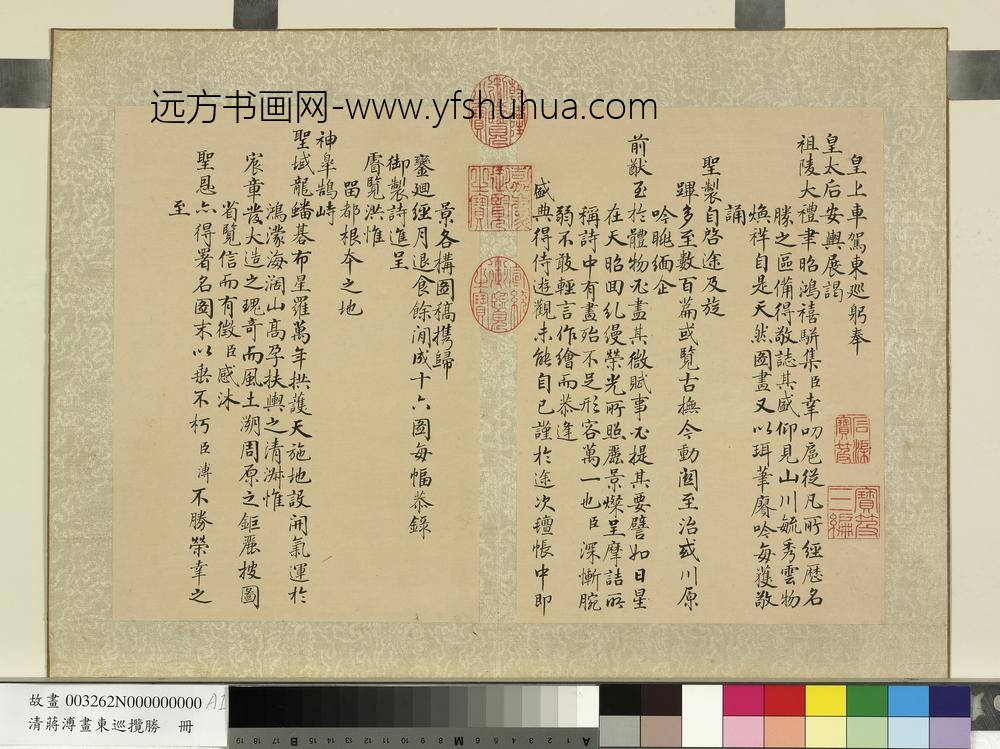 远方书画网-www.yfshuhua.com
皇上車駕東巡躬奉
皇太后安輿展謁
祖陵大禮聿昭鴻禧駢集臣幸叨扈從凡所經歷名
勝之區備得敬誌其盛仰見山川毓秀雲物
煥祥自是天然圖畫又以珥筆賡吟每獲敬
誦
聖製自啓途及旋
蹕多至數百篇或覽古撫今動關至治或川原
吟眺緬企
前猷至於體物無不盡其微賦事必提其要譬如日星
在天昭回糺縵榮光所照麗景燦呈摩詰所
稱詩中有畫殆不足形容萬一也臣深慚腕
弱不敢輕言作繪而恭逢
盛典得侍遊觀未能自已謹於途次氊帳中即
景各構圖稿攜歸
鑾迴經月退食餘閒成十六圖每幅恭錄
御製詩進呈
睿覽洪惟
留都根本之地
神臯鵠峙
聖域龍蟠碁布星羅萬年拱護天施地設開氣運於
鴻濛海濶山高孕扶輿之清淑惟
宸章發大造之瑰奇而風土溯周原之鉅麗披圖
省覽信而有徵臣感沐
聖恩亦得署名圖末以垂不朽臣溥不勝榮幸之
至
石渠寶笈
寶笈三編
嘉慶御覽之寶
宣統御覽之寶
故畫 003262N000000000 A1
清蔣溥畫東巡攬勝　冊
19 18 17 16 15 14 13 12 11 10 9 8 7 6 5 4 3 2 1
B M A